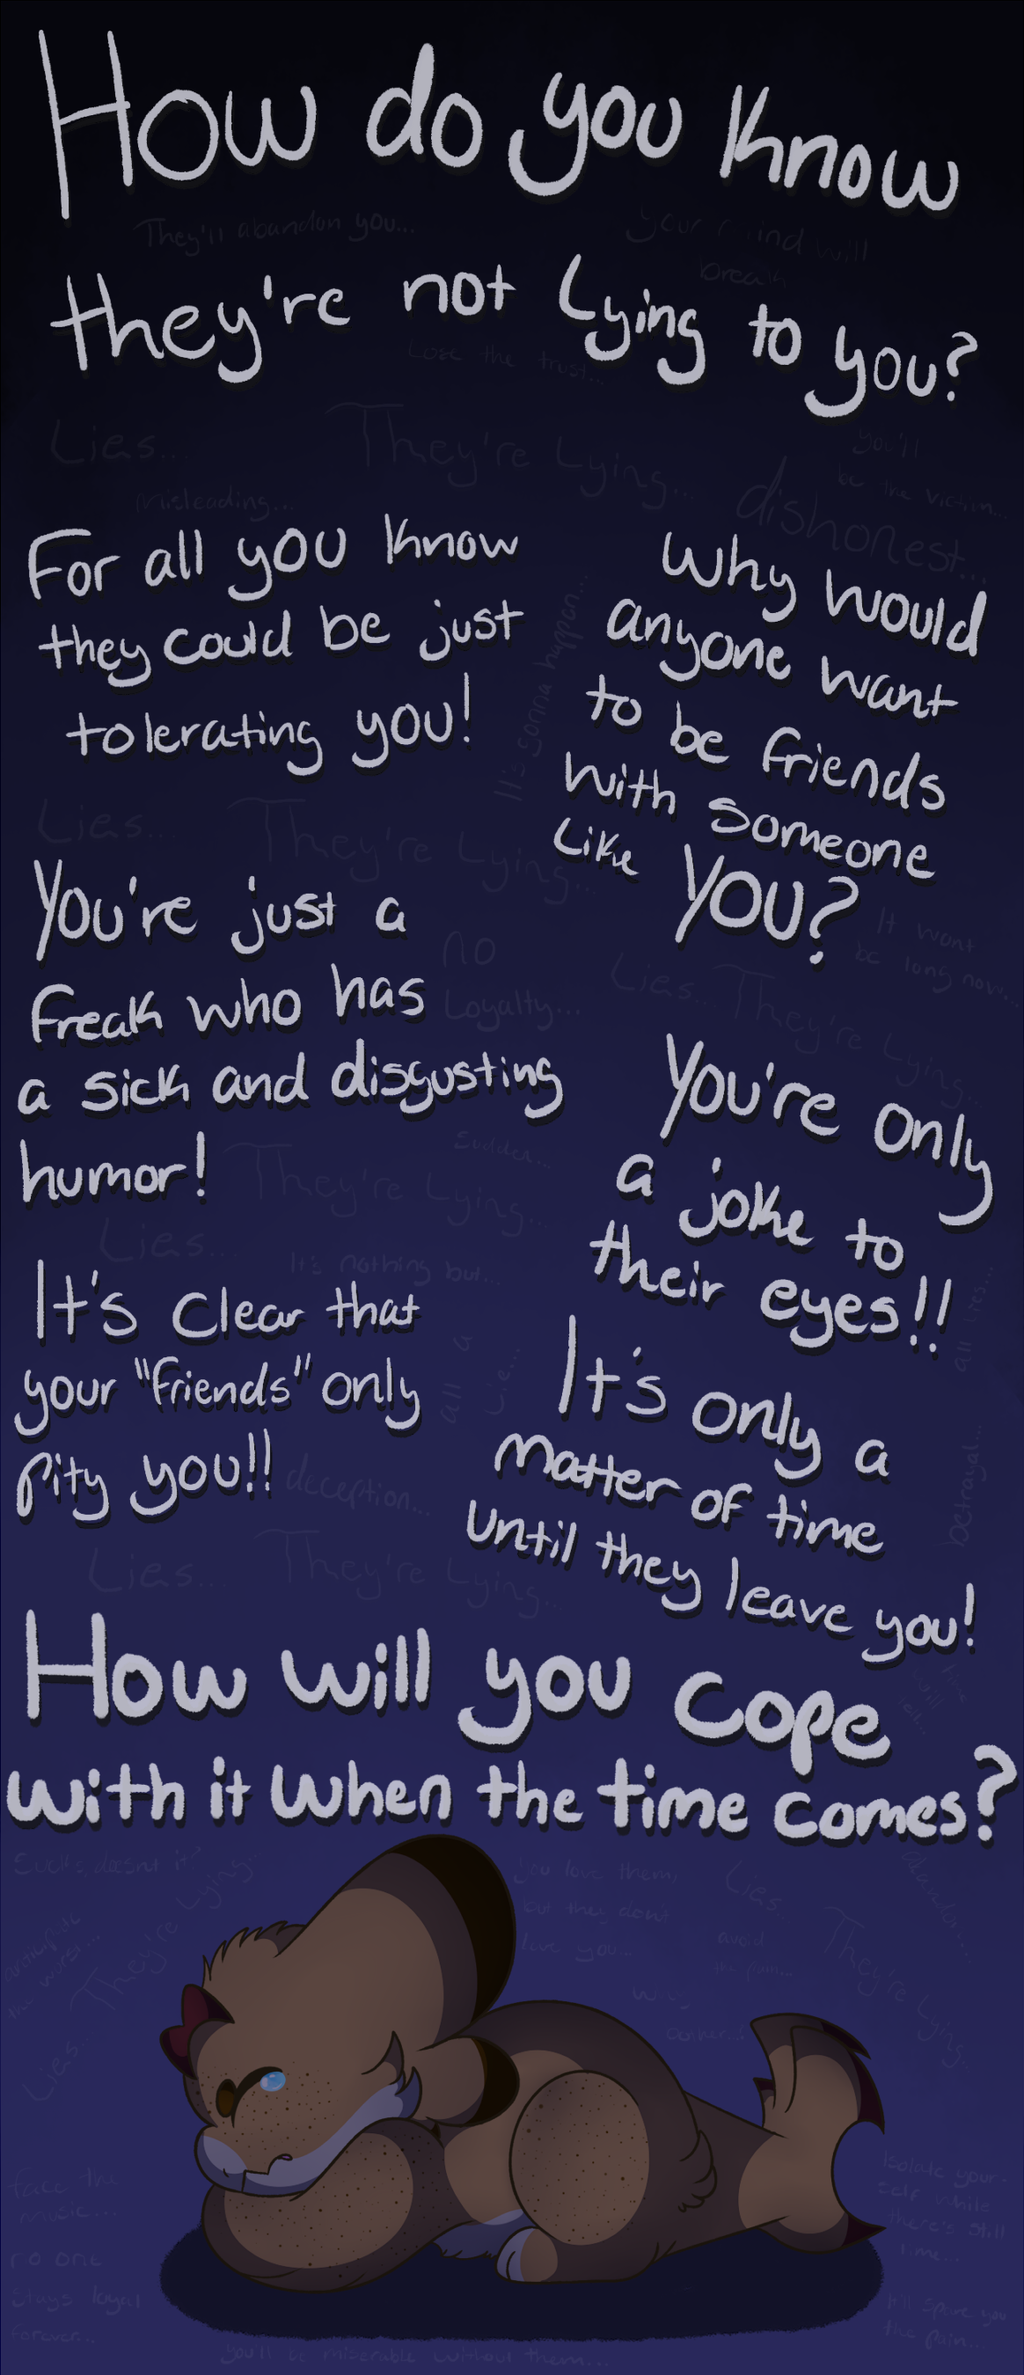 How do you know
They'll abandon you...
your mind will
break
they're not Lying to you?
Lose the trust...
Lies...
They're Lying...
you'll
be the victim...
misleading...
dishonest...
For all you know
they could be just
tolerating you!
Why would
anyone want
to be friends
with someone
Like YOU?
It's gonna happen...
Lies...
They're Lying...
You're just a
freak who has
a sick and disgusting
humor!
no
Loyalty...
It wont
be long now...
Lies... They're Lying...
You're only
a joke to
their eyes!!
They're Lying...
Lies...
It's nothing but...
It's clear that
your "friends" only
pity you!!
all a
Lie...
all lies...
deception...
betrayal...
It's only a
matter of time
until they leave you!
Lies... They're Lying...
How will you cope
with it when the time comes?
Sucks doesnt it?
They're Lying...
You love them,
but they don't
love you...
Lies
They're Lying...
abandon...
avoid
the pain...
Lies
face the
music...
no one
stays loyal
forever...
Isolate your-
self while
there's still
time...
It'll spare you
the pain...
you'll be miserable without them...